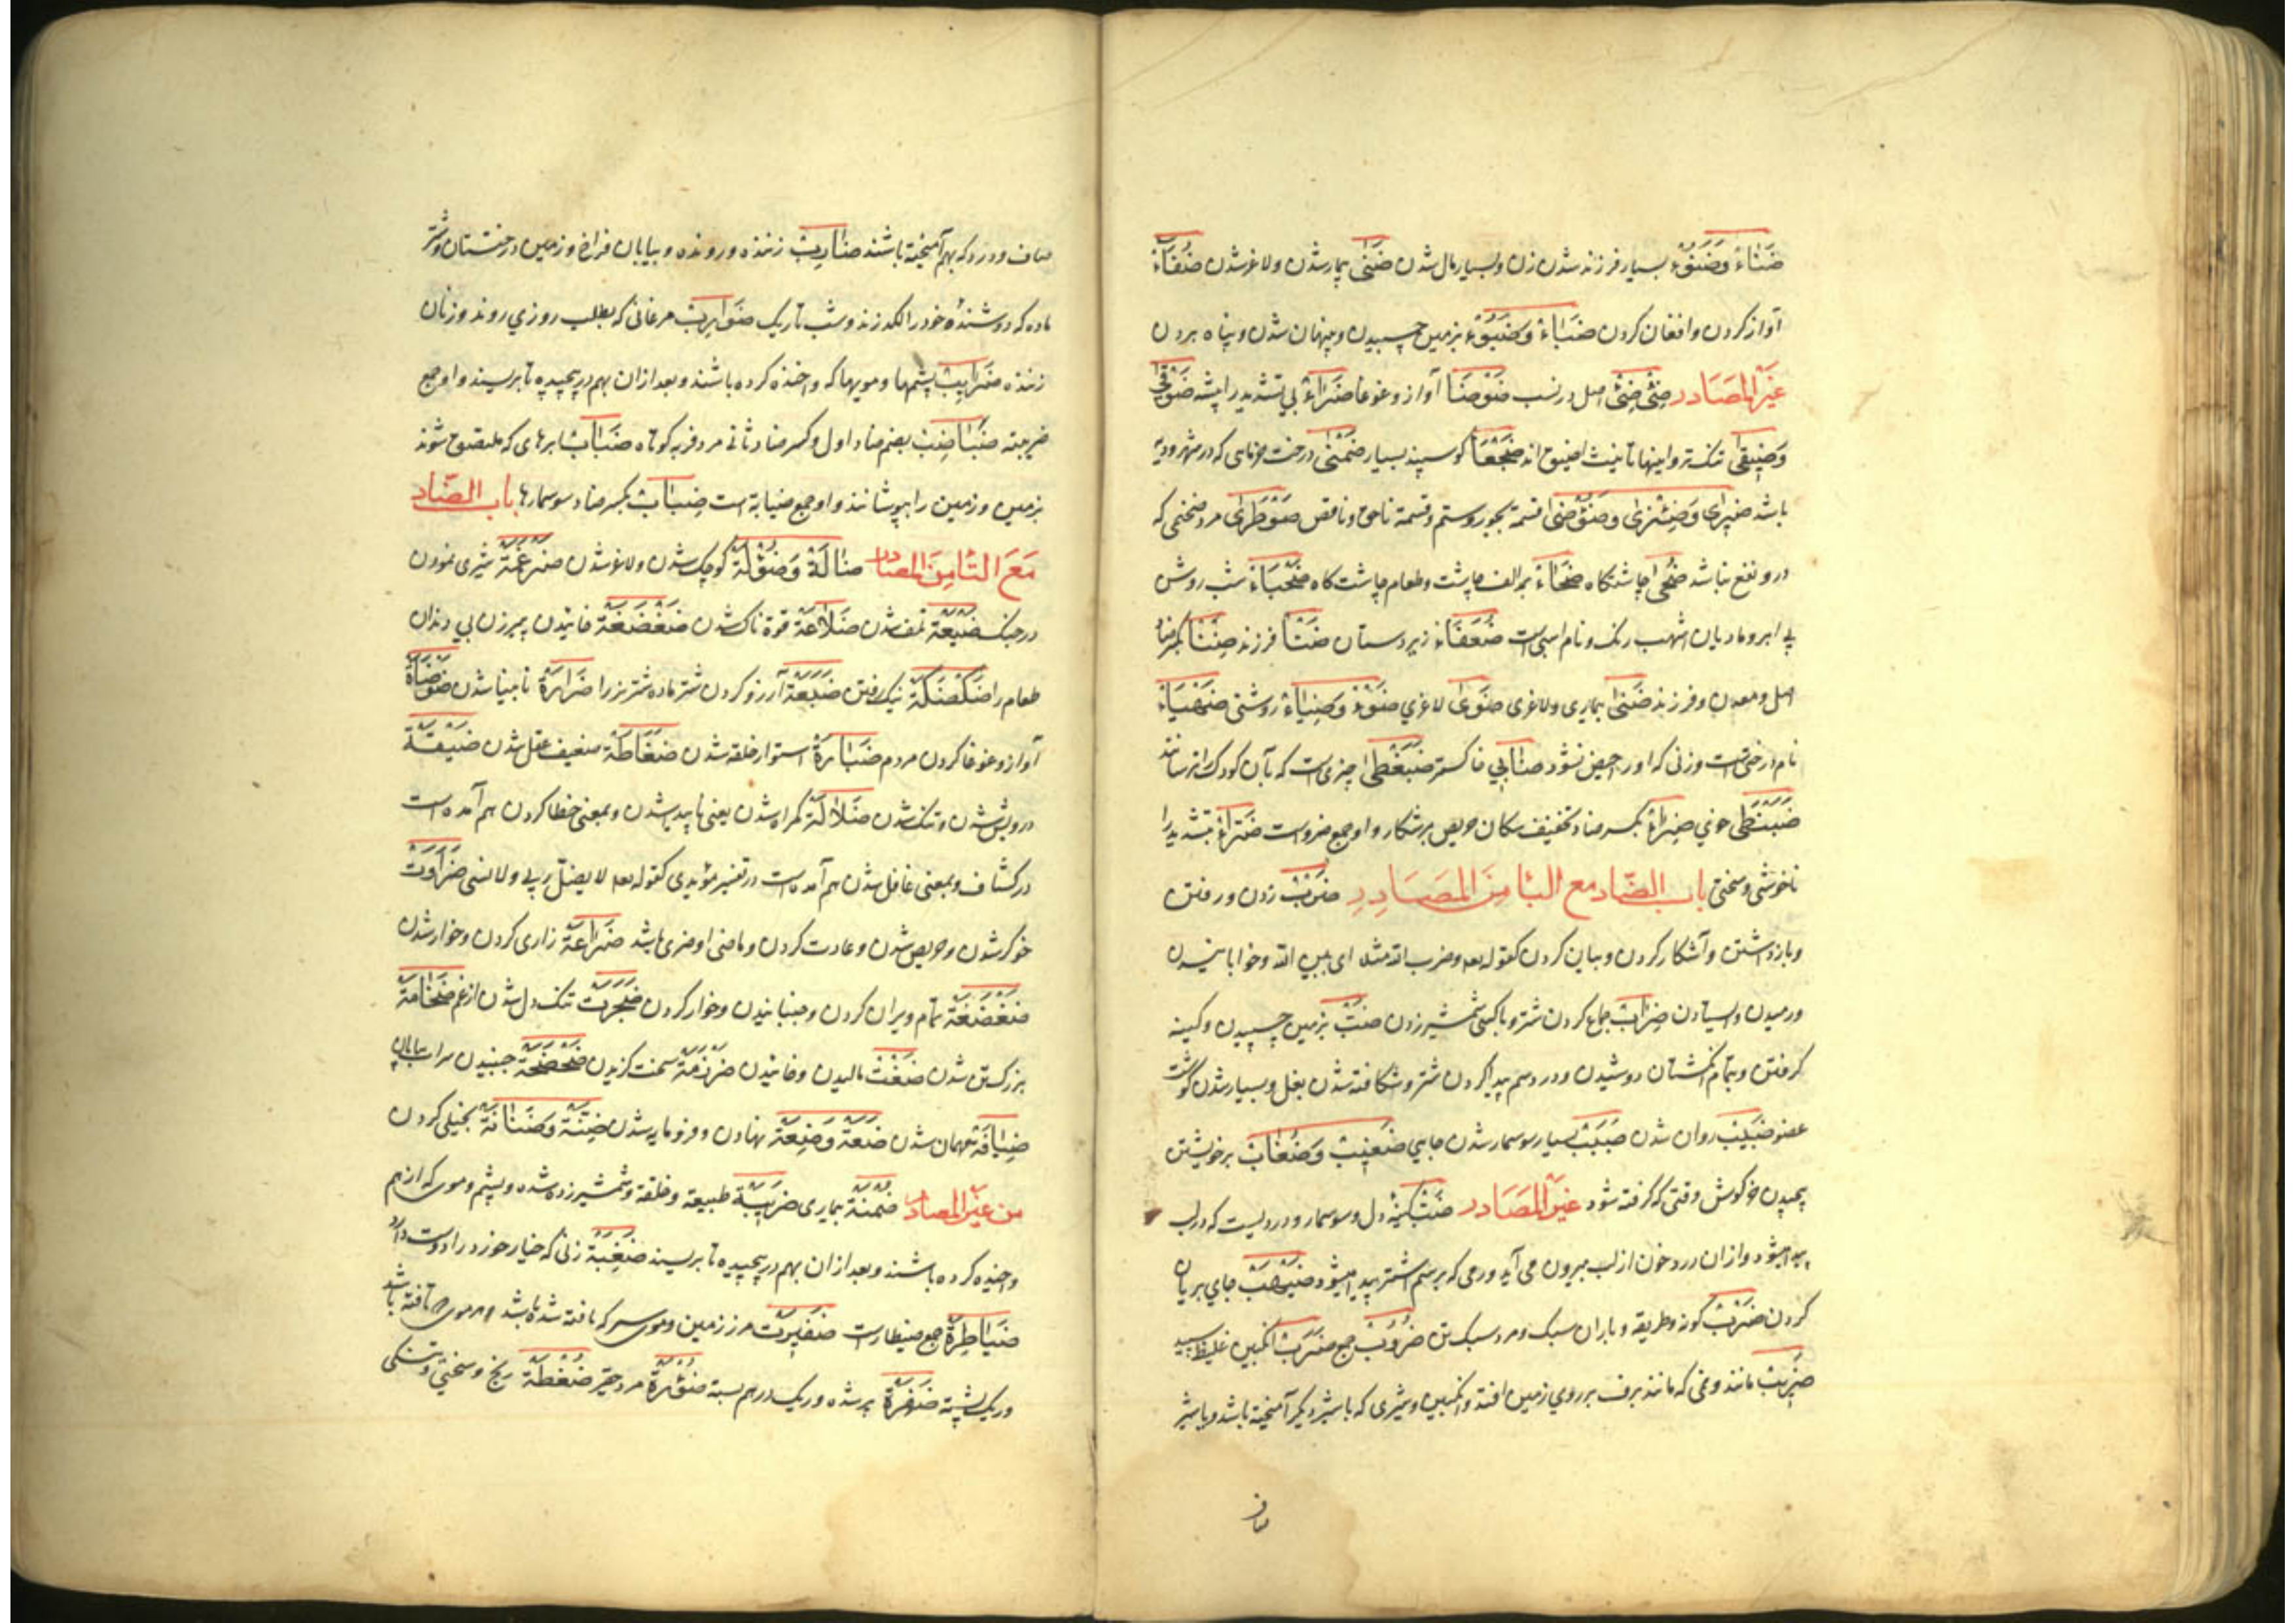 ضَنَاءٌ وَضُنُوٌّ بسیار فرزند شدن زن و بسیار مال شدن ضَنًی بیمار شدن و لاغر شدن ضُغَاءٌ
آواز کردن و افغان کردن ضَبَاءٌ وَضُبُوٌّ بزمین چسبیدن و پنهان شدن و پناه بردن
غیر المصادر ضِئْضِئٌ اصل در نسب ضَوْضَا آواز و غوغا ضَرَاءٌ بی تشدید را پیشه ضُوقَی
وَضِیقَی تنک تر و اینها تانیث اضیق اند ضَجْعَا کوسپند بسیار ضَمْنَی درخت خرمای که در شهر و دیه
باشد ضِیزَی وَضِئْزَی وَضُوْضَی قسمة بجور و ستم و قسمة ناحق و ناقص ضَوْطَرَی مرد ضخمی که
درو نفع نباشد ضُحًی چاشتکاه ضَحَاءٌ بمد الف چاشت و طعام چاشت کاه ضَحْیَاءُ شب روشن
بی ابر و مادیان اشهب رنک و نام اسبی است ضُعَفَاءُ زیردستان ضَنْأ فرزند ضِنْأ بکسر ضاد
اصل و معدن و فرزند ضَنَی بیماری و لاغری ضَوَی لاغری ضَوْءٌ وَضِیَاءٌ روشنی ضَهْیَاءُ
نام درختی است و زنی که او را حیض نشود ضابی خاکستر ضَبَغْطَی چیزی است که بآن کودک را ترسانند
ضَبَنْطَی قوی ضِرَاءٌ بکسر ضاد و تخفیف سکان حریص بر شکار و او جمع ضرو است ضَرَّاءُ بتشدید را
ناخوشی و سختی باب الضّاد مع البا من المصادر ضَرْبٌ زدن و رفتن
و بازداشتن و آشکار کردن و بیان کردن کقوله تعه و ضرب الله مثلا ای بین الله و خوابانیدن
و رمیدن و ایستادن ضِرَابٌ جماع کردن شتر و با کسی شمشیر زدن ضَبٌّ بزمین چسپیدن و کینه
کرفتن و بتمام انکشتان دوشیدن و درد سم پیدا کردن شتر و شکافته شدن بغل و بسیار شدن کوشت
عضو ضَبِیبٌ روان شدن ضَبَبٌ بسیار سوسمار شدن جایی ضَغِیبٌ وَضُغَابٌ بر خویشتن
پیچیدن خرکوش وقتی که کرفته شود غیر المصادر ضَبٌّ کینه دل و سوسمار و دردیست که در لب
پیدا میشود و ازان درد خون از لب بیرون می آید و رمی که بر سم اشتر پیدا میشود ضَیْهَبٌ جای بریان
کردن ضَرْبٌ کونه و طریقه و باران سبک و مرد سبک تن ضُرُوبٌ جمع ضَرَبٌ انکبین غلیظ سپید
ضَرِیبٌ مانند و نمی که مانند برف بر روی زمین افتد و انکبین و شیری که با شیر دیکر آمیخته باشد و با شیر
صاف
صاف و درد که بهم آمیخته باشند ضَارِبٌ زننده و رونده و بیابان فراخ و زمین درختستان و شتر
ماده که دوشندهٔ خود را لکد زند و شب تاریک ضَوَارِبٌ مرغانی که بطلب روزی روند و زنان
زننده ضَرَایِبٌ پشمها و مویها که واخنده کرده باشند و بعد ازان بهم در پیچیده تا بریسند و او جمع
ضریبته ضُبَاضِبٌ بضم ضاد اول و کسر ضاد ثانی مرد فربه کوتاه ضَبَابٌ ابرهای که ملتصق شوند
بزمین و زمین را بپوشانند و او جمع ضبابة است ضِبَابٌ بکسر ضاد سوسمارها باب الضّاد
مَعَ التا مِن المصادر ضَالَةٌ وَضُؤْلَةٌ کوچک شدن و لاغر شدن ضَرْغَمَةٌ شیری نمودن
در جنک ضَیْعَةٌ تلف شدن ضَلَاعَةٌ قوة ناک شدن ضَغْضَغَةٌ خائیدن پیرزن بی دندان
طعام را ضَکْضَکَةٌ نیک رفتن ضَبَعَةٌ آرزو کردن شتر ماده شتر نر را ضَرَارَةٌ نابینا شدن ضَوْضَاةٌ
آواز و غوغا کردن مردم ضَبَارَةٌ استوار خلقه شدن ضَغَاطَةٌ ضعیف عقل شدن ضَیْقَةٌ
درویش شدن و تنک شدن ضَلَالَةٌ کمراه شدن یعنی ناپدید شدن و بمعنی خطا کردن هم آمده است
در کشاف و بمعنی غافل شدن هم آمده است در تفسیر مؤیدی کقوله تعه لا یضل ربی و لا ینسی ضَرَاوَتٌ
خوکر شدن و حریص شدن و عادت کردن و ماضی او ضری باشد ضَرَاعَةٌ زاری کردن و خوار شدن
ضَعْضَعَةٌ تمام ویران کردن و جنبانیدن و خوار کردن ضُجْرَتٌ تنک دل شدن از غم ضَخَامَةٌ
بزرک تن شدن ضَغْثٌ مالیدن و خائیدن ضَرْزَمَةٌ سخت کزیدن ضَحْضَحَةٌ جنبیدن سراب بیابان
ضِیَافَةٌ مهمان شدن ضَعَةٌ وَضِعَةٌ نهادن و فرومایه شدن ضِنَّةٌ وَضَنَانَةٌ بخیلی کردن
من غیر المصادر ضُمْنَةٌ بیماری ضَرِیبَةٌ طبیعة و خلقة و شمشیر زده شده و پشم و موی که از هم
واخیده کرده باشند و بعد ازان بهم در پیچیده تا بریسند ضَغِبَةٌ زنی که خیار خورد را دوست دارد
ضَیَاطِرَةٌ جمع ضیطار است ضَفِیرَتٌ مرز زمین و موی سر که بافته شده باشد
و ریک پشته ضَفِرَةٌ پر شده و ریک در هم بسته ضُؤْرَةٌ مرد حقیر ضُغْطَةٌ رنج و سختی و تنکی